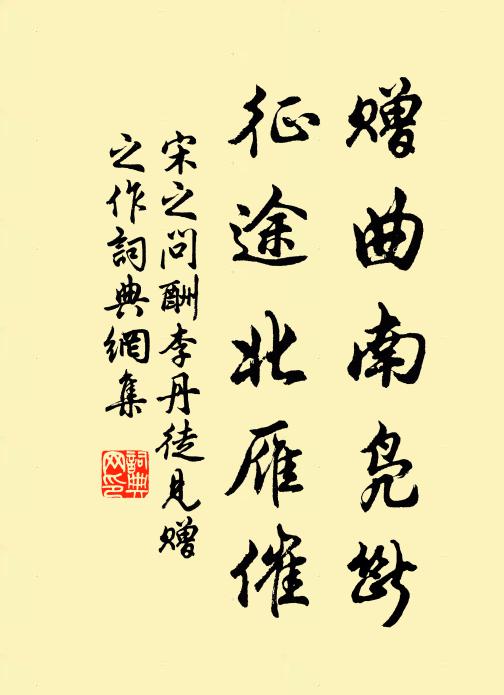 赠曲南凫断
征途北雁催
宋之问酬李丹徒见赠
之作词典網集
詞典网印